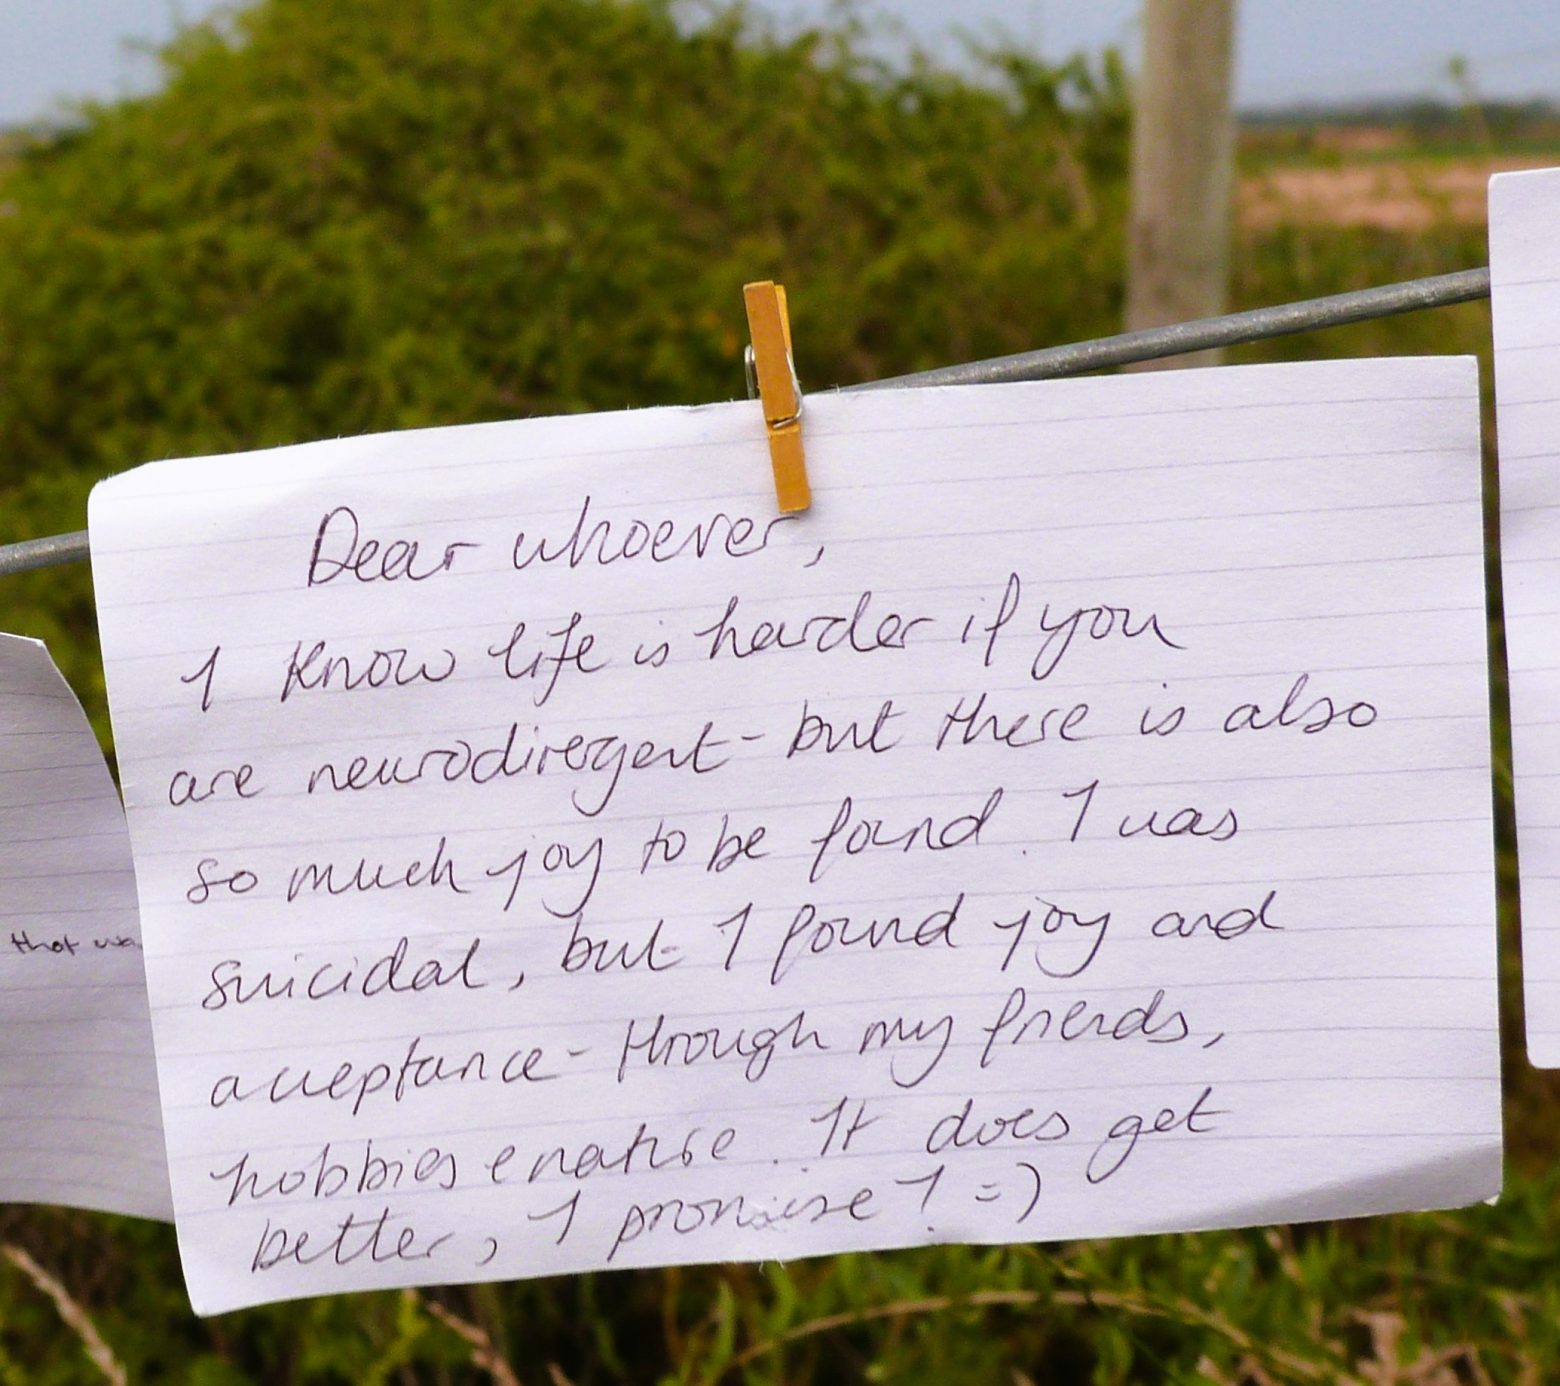 Dear whoever,
I know life is harder if you
are neurodivergent - but there is also
so much joy to be found. I was
suicidal, but I found joy and
acceptance - through my friends,
hobbies e nature. It does get
better, I promise! =)
that wa